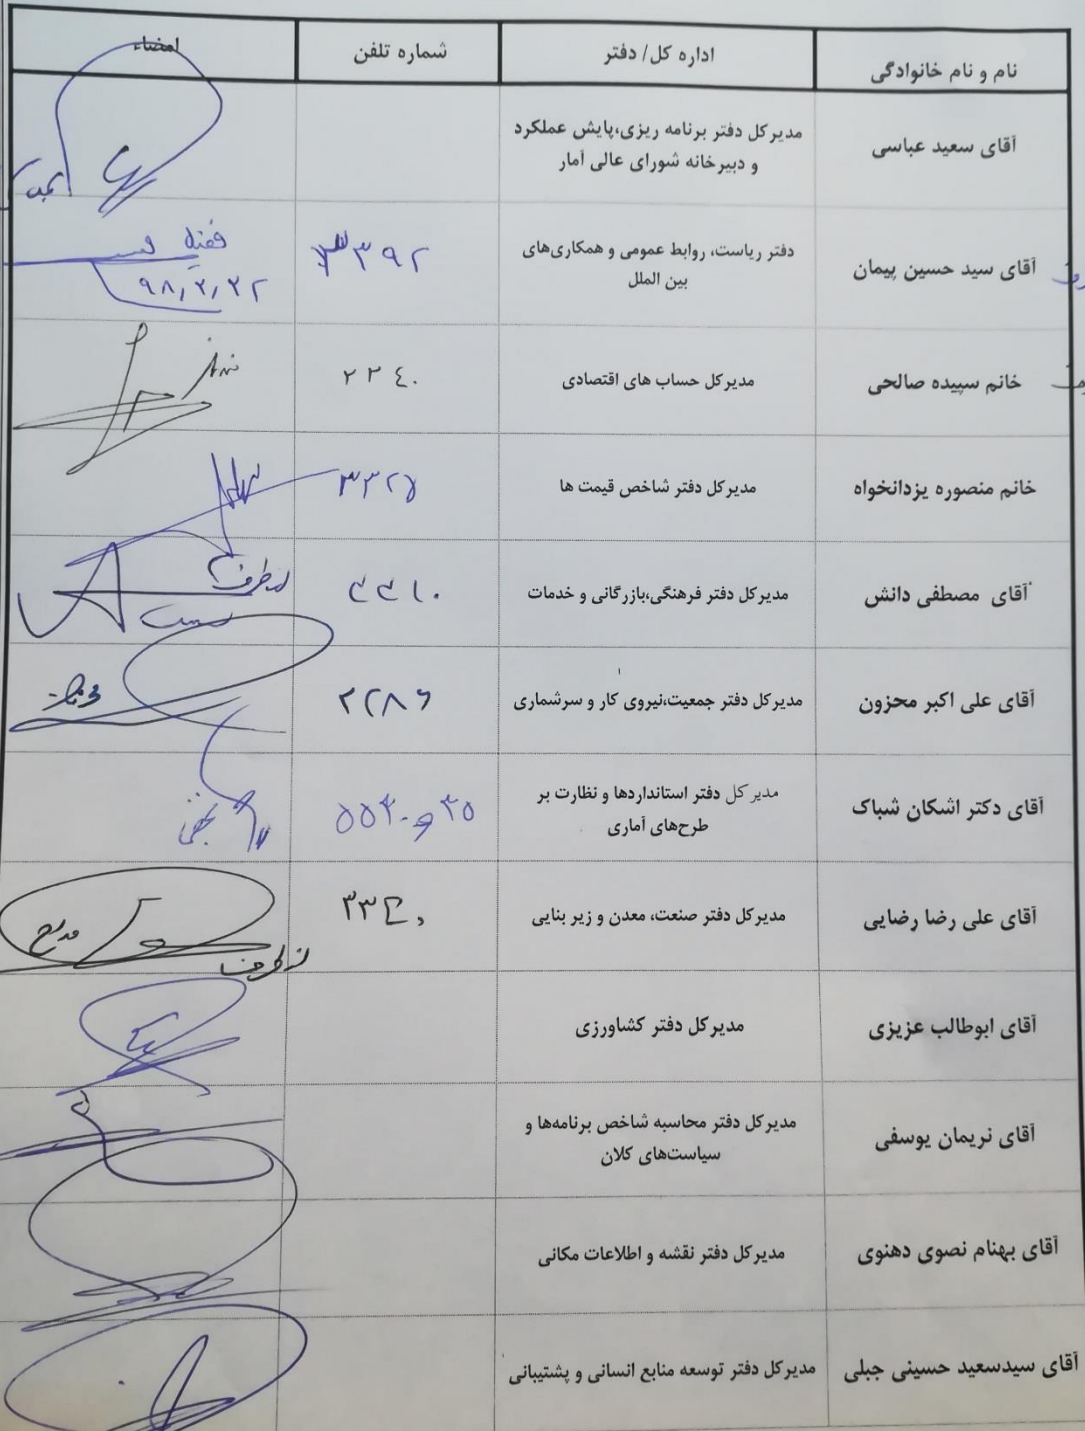 نام و نام خانوادگی
اداره کل/ دفتر
شماره تلفن
امضاء
آقای سعید عباسی
مدیرکل دفتر برنامه ریزی،پایش عملکرد
و دبیرخانه شورای عالی آمار
آقای سید حسین پیمان
دفتر ریاست، روابط عمومی و همکاری‌های
بین الملل
۳۳۹۲
۹۸٫۲٫۲۲
خانم سپیده صالحی
مدیرکل حساب های اقتصادی
۲۲۴۰
خانم منصوره یزدانخواه
مدیرکل دفتر شاخص قیمت ها
۳۳۲۵
آقای مصطفی دانش
مدیرکل دفتر فرهنگی،بازرگانی و خدمات
از طرف
آقای علی اکبر محزون
مدیرکل دفتر جمعیت،نیروی کار و سرشماری
۲۲۸۶
آقای دکتر اشکان شباک
مدیرکل دفتر استانداردها و نظارت بر
طرح‌های آماری
آقای علی رضا رضایی
مدیرکل دفتر صنعت، معدن و زیر بنایی
۳۳۴۰
آقای ابوطالب عزیزی
مدیرکل دفتر کشاورزی
آقای نریمان یوسفی
مدیرکل دفتر محاسبه شاخص برنامه‌ها و
سیاست‌های کلان
آقای بهنام نصوی دهنوی
مدیرکل دفتر نقشه و اطلاعات مکانی
آقای سیدسعید حسینی جبلی
مدیرکل دفتر توسعه منابع انسانی و پشتیبانی